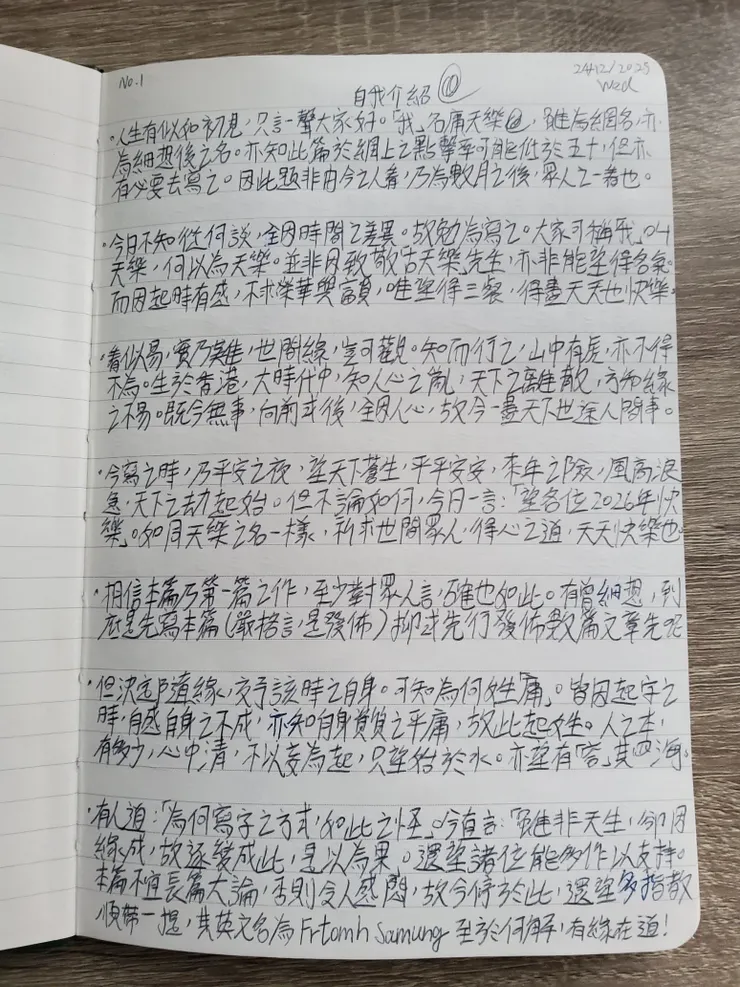 No.1
24/12/2025
Wed
自我介紹
·人生有似如初見，只言一聲大家好。「我」名庸天樂，雖為網名，亦
為細想後之名。亦知此篇於網上之點擊率可能低於五十，但亦
有必要去寫之。因此題非由今之人看，乃為數月之後，眾人之一看也。
·今日不知從何談，全因時間之差異。故勉為寫之。大家可稱「我」叫
天樂，何以為天樂。並非因致敬古天樂先生，亦非能望得名氣。
而因起時有感，不求榮華與富貴，唯望得三餐，得盡天天也快樂。
·看似易，實乃難，世間緣，豈可觀。知而行之，山中有虎，亦不得
不為。生於香港，大時代中，知人心之亂，天下之離散，方知緣
之不易。既今無事，向前或後，全因人心，故今一盡天下世途人間事。
·今寫之時，乃平安之夜，望天下蒼生，平平安安，來年之險，風高浪
急，天下之劫起始。但不論如何，今日一言：「望各位2026年快
樂」。如同天樂之名一樣，祈求世間眾人，得心之道，天天快樂也
·相信本篇乃第一篇之作，至少對眾人言，確也如此。有曾細想，到
底是先寫本篇（嚴格言，是發佈）抑或先行發佈數篇文章先呢
·但決定隨緣，交予該時之自身。可知為何姓「庸」。皆因起字之
時，自感自身之不成，亦知自身資質之平庸，故此起姓。人之本，
有多少，心中清，不以妄為起，只望始於水。亦望有「容」其四海。
·有人道：「為何寫字之方式，如此之怪」。今直言：「雖非天生，卻因
緣成，故逐變成此，是以為果。還望諸位能多作以支持。
本篇不宜長篇大論，否則令人感悶，故今停於此，還望多指教
順帶一提，其英文名為 Frtomh Samung 至於何解，有緣在道！